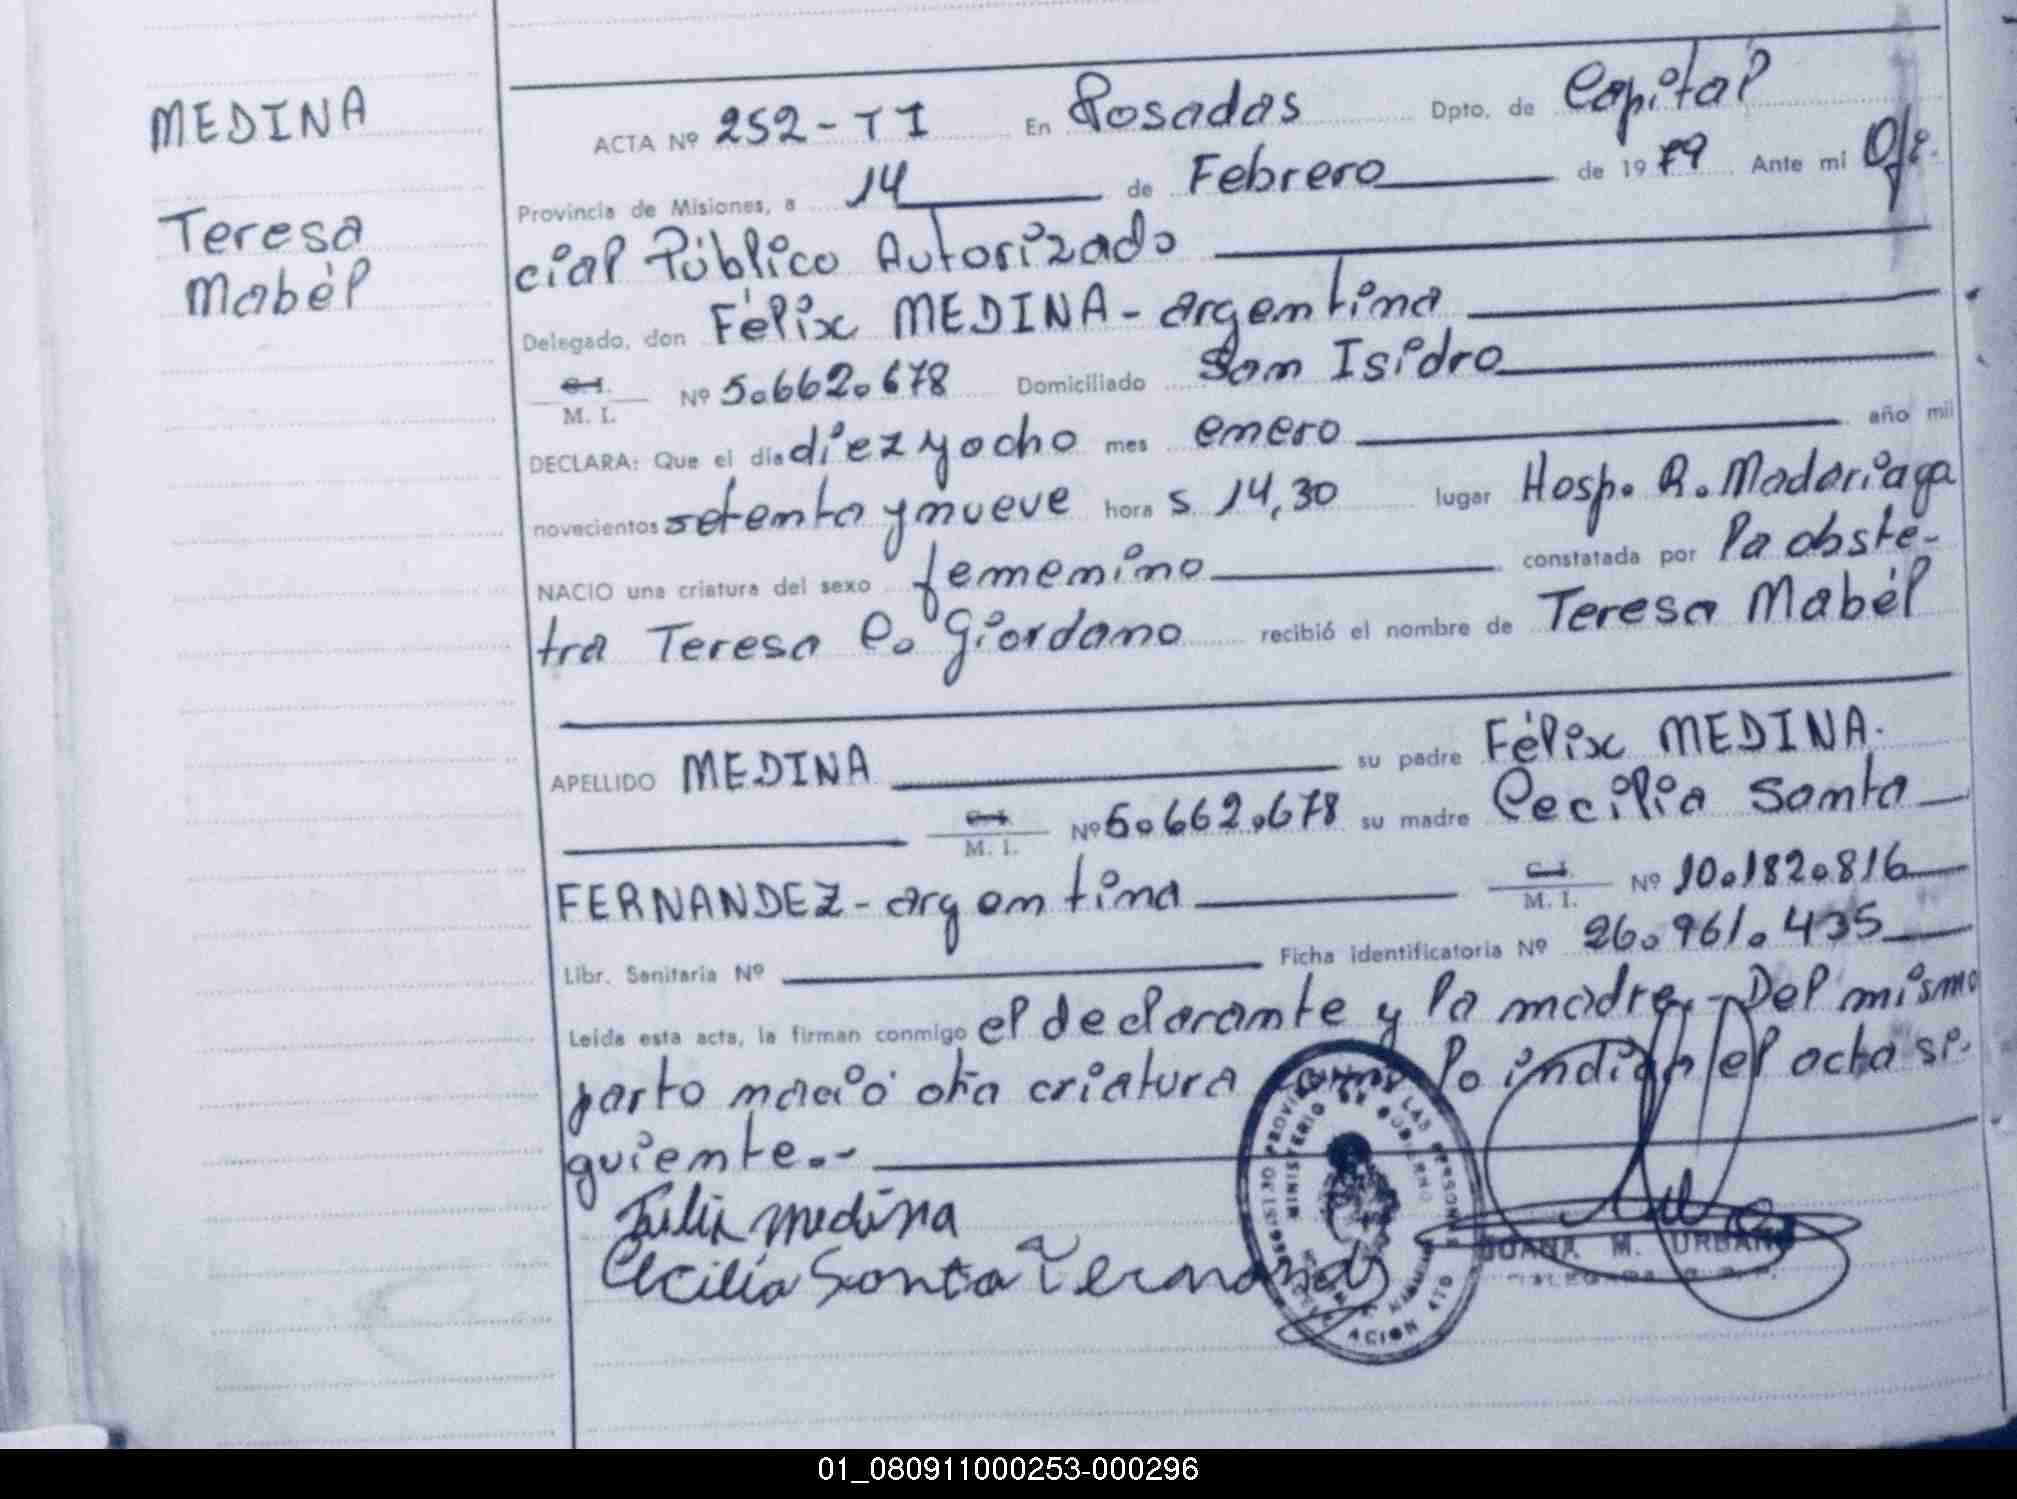 MEDINA
Teresa
Mabél
ACTA Nº 252-TI En Posadas Dpto. de Capital
Provincia de Misiones, a 14 de Febrero de 1979 Ante mi Ofi-
cial Público Autorizado
Delegado, don Félix MEDINA - argentina
C.I. M. I. Nº 5.662.678 Domiciliado San Isidro
DECLARA: Que el día diez y ocho mes enero año mil
novecientos setenta y nueve hora s 14,30 lugar Hosp. R. Madariaga
NACIO una criatura del sexo femenino constatada por la obste-
tra Teresa C. Giordano recibió el nombre de Teresa Mabél
APELLIDO MEDINA su padre Félix MEDINA.
C.I. M. I. Nº 5.662.678 su madre Cecilia Santa
FERNANDEZ - argentina C.I. M. I. Nº 10.182.816
Libr. Sanitaria Nº Ficha identificatoria Nº 26.961.435
Leída esta acta, la firman conmigo el declarante y la madre.- Del mismo
parto nació otra criatura como lo indica el acta si-
guiente.-
Felix medina
Cecilia Santa Fernandez
REGISTRO PROVINCIAL DE LAS PERSONAS
MINISTERIO DE GOBIERNO
JUANA M. URBANO
01_080911000253-000296